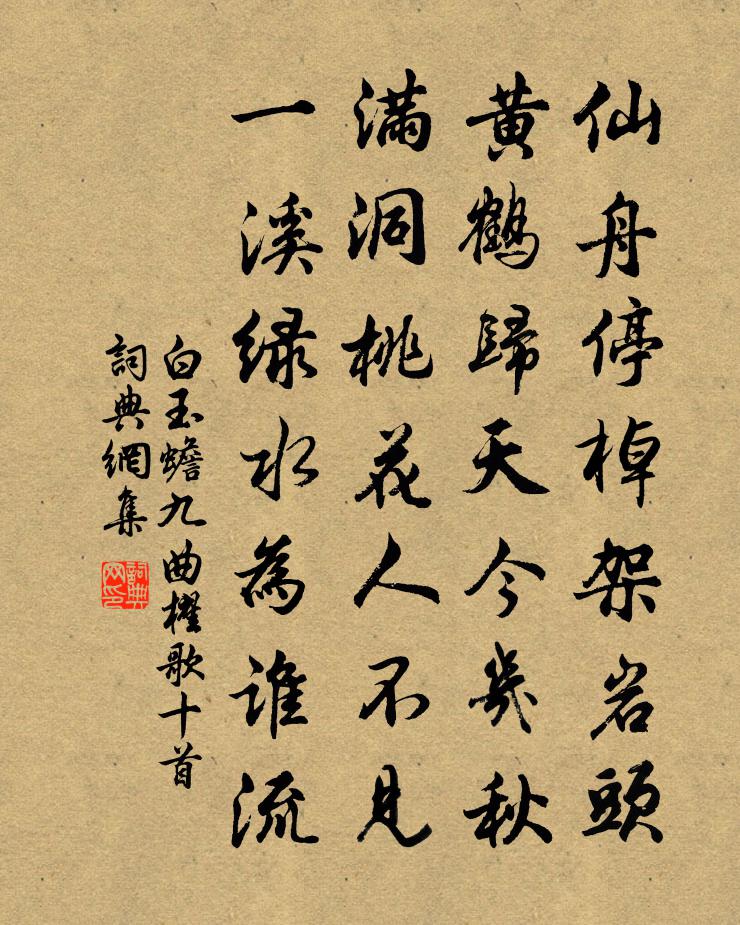 仙舟停棹架岩頭
黃鶴歸天今幾秋
滿洞桃花人不見
一溪綠水為誰流
白玉蟾九曲櫂歌十首
詞典網集
詞典网印